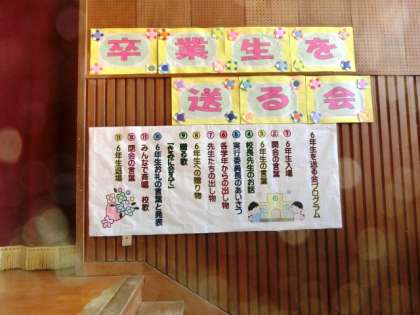 卒業生を
送る会
6年生を送る会プログラム
① 6年生入場
② 開会の言葉
③ 6年生の言葉
④ 校長先生のお話
⑤ 実行委員長のあいさつ
⑥ 各学年からの出し物
⑦ 先生たちの出し物
⑧ 6年生への贈り物
⑨ 贈る歌
⑩ 6年生お礼の言葉と発表
⑪ みんなで斉唱 校歌
⑫ 閉会の言葉
⑬ 6年生退場